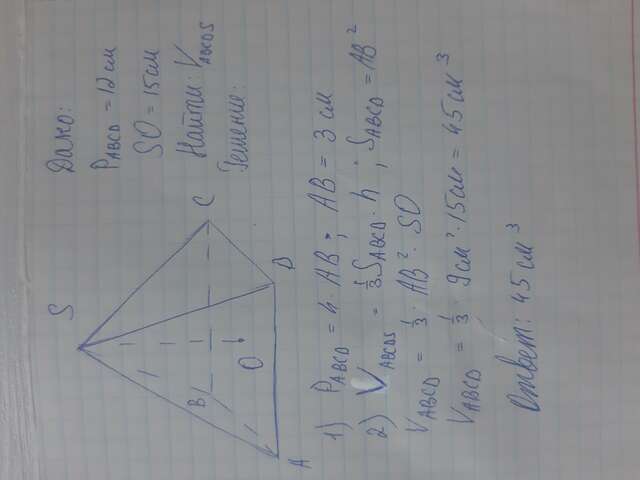 Дано:
P ABCD = 12 см
SO = 15 см
Найти: V ABCDS
Решение:
S
B
C
O
A
D
1) P ABCD = 4 · AB; AB = 3 см
2) V ABCDS = 1/3 S ABCD · h ; S ABCD = AB²
V ABCD = 1/3 · AB² · SO
V ABCD = 1/3 · 9 см² · 15 см = 45 см³
Ответ: 45 см³